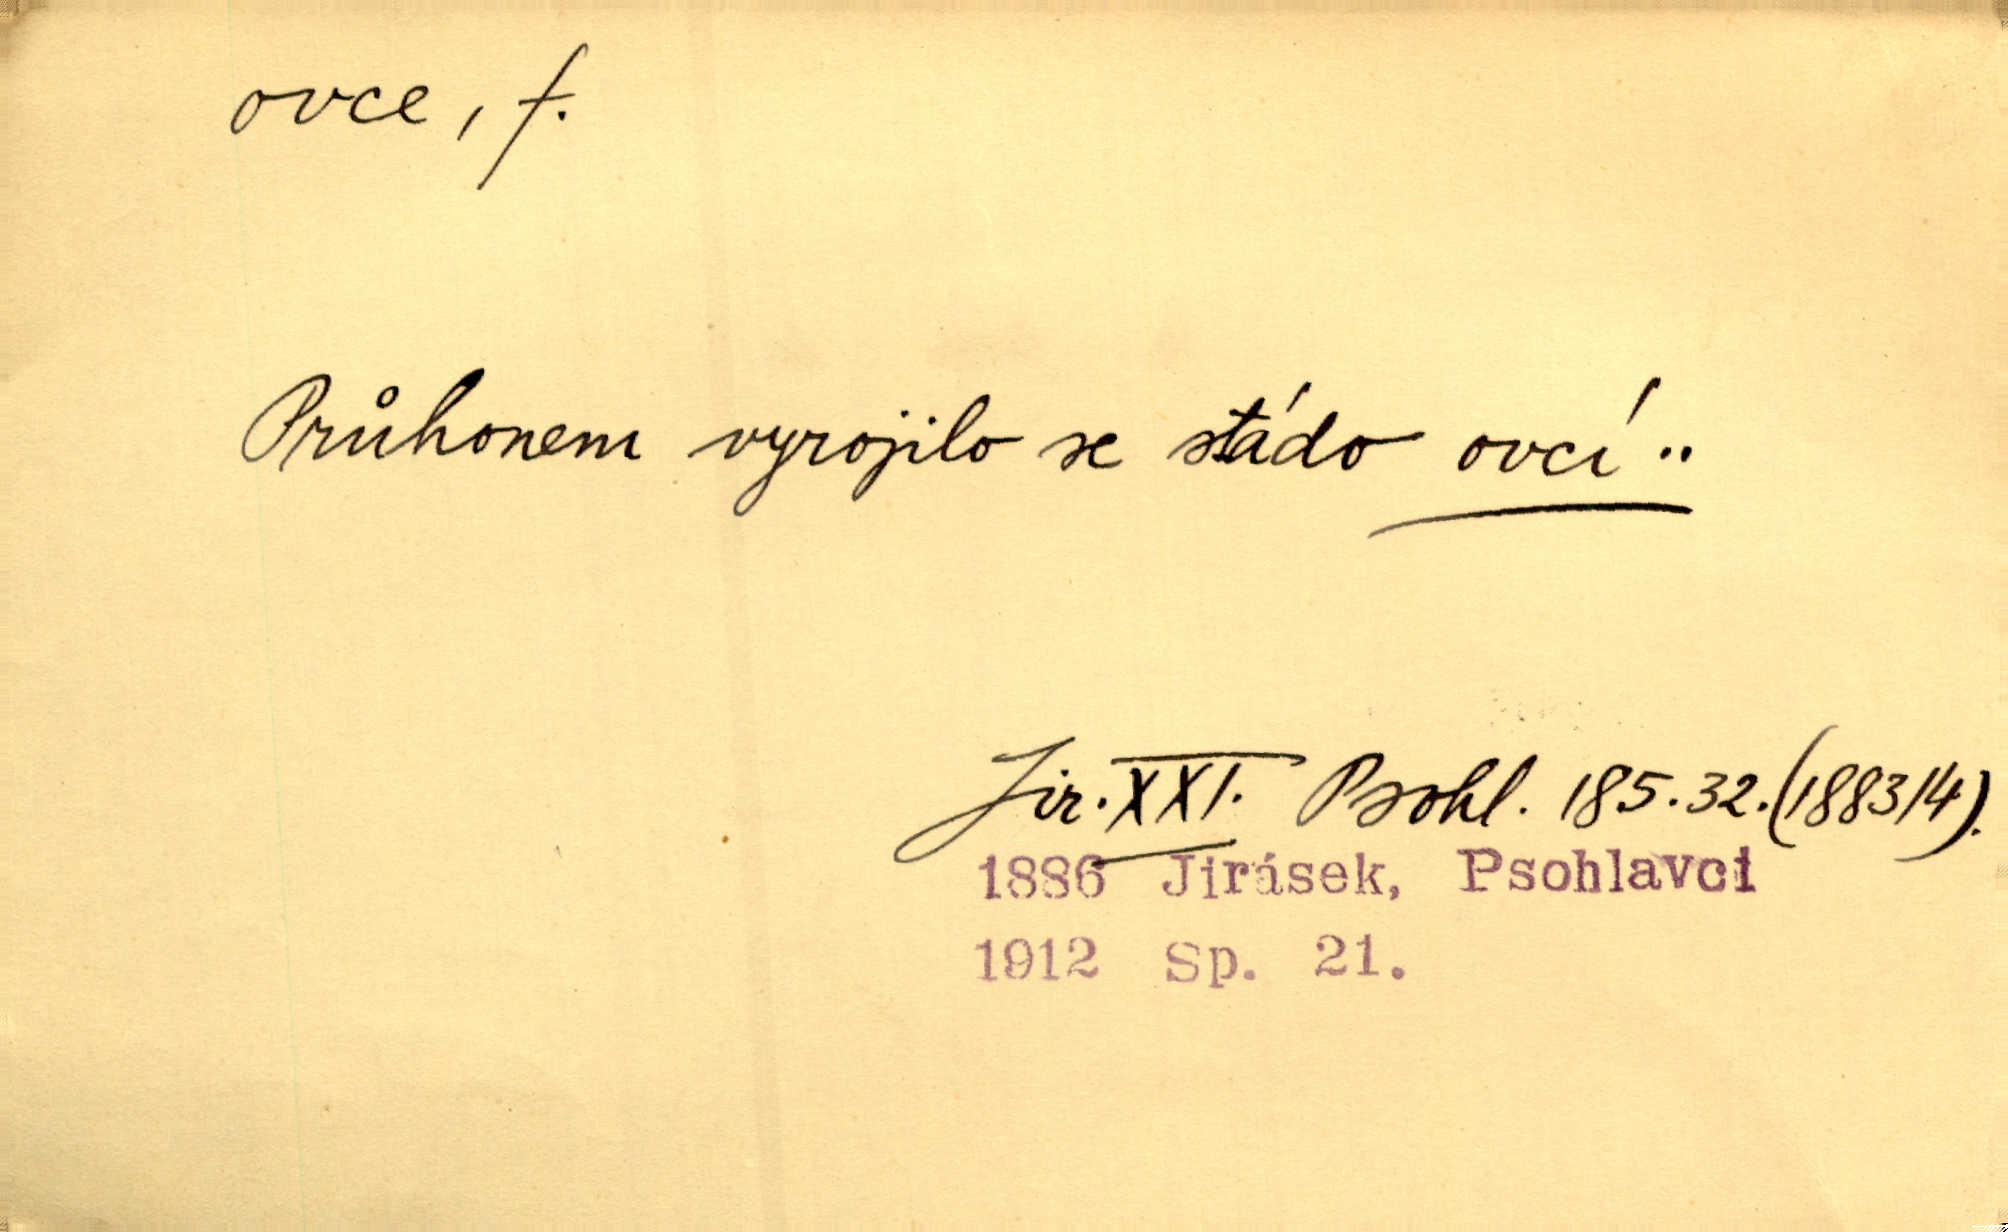 ovce, f.
Průhonem vyrojilo se stádo ovcí ..
Jir. XXI. Psohl. 185.32. (1883/4).
1886 Jirásek, Psohlavci
1912 Sp. 21.